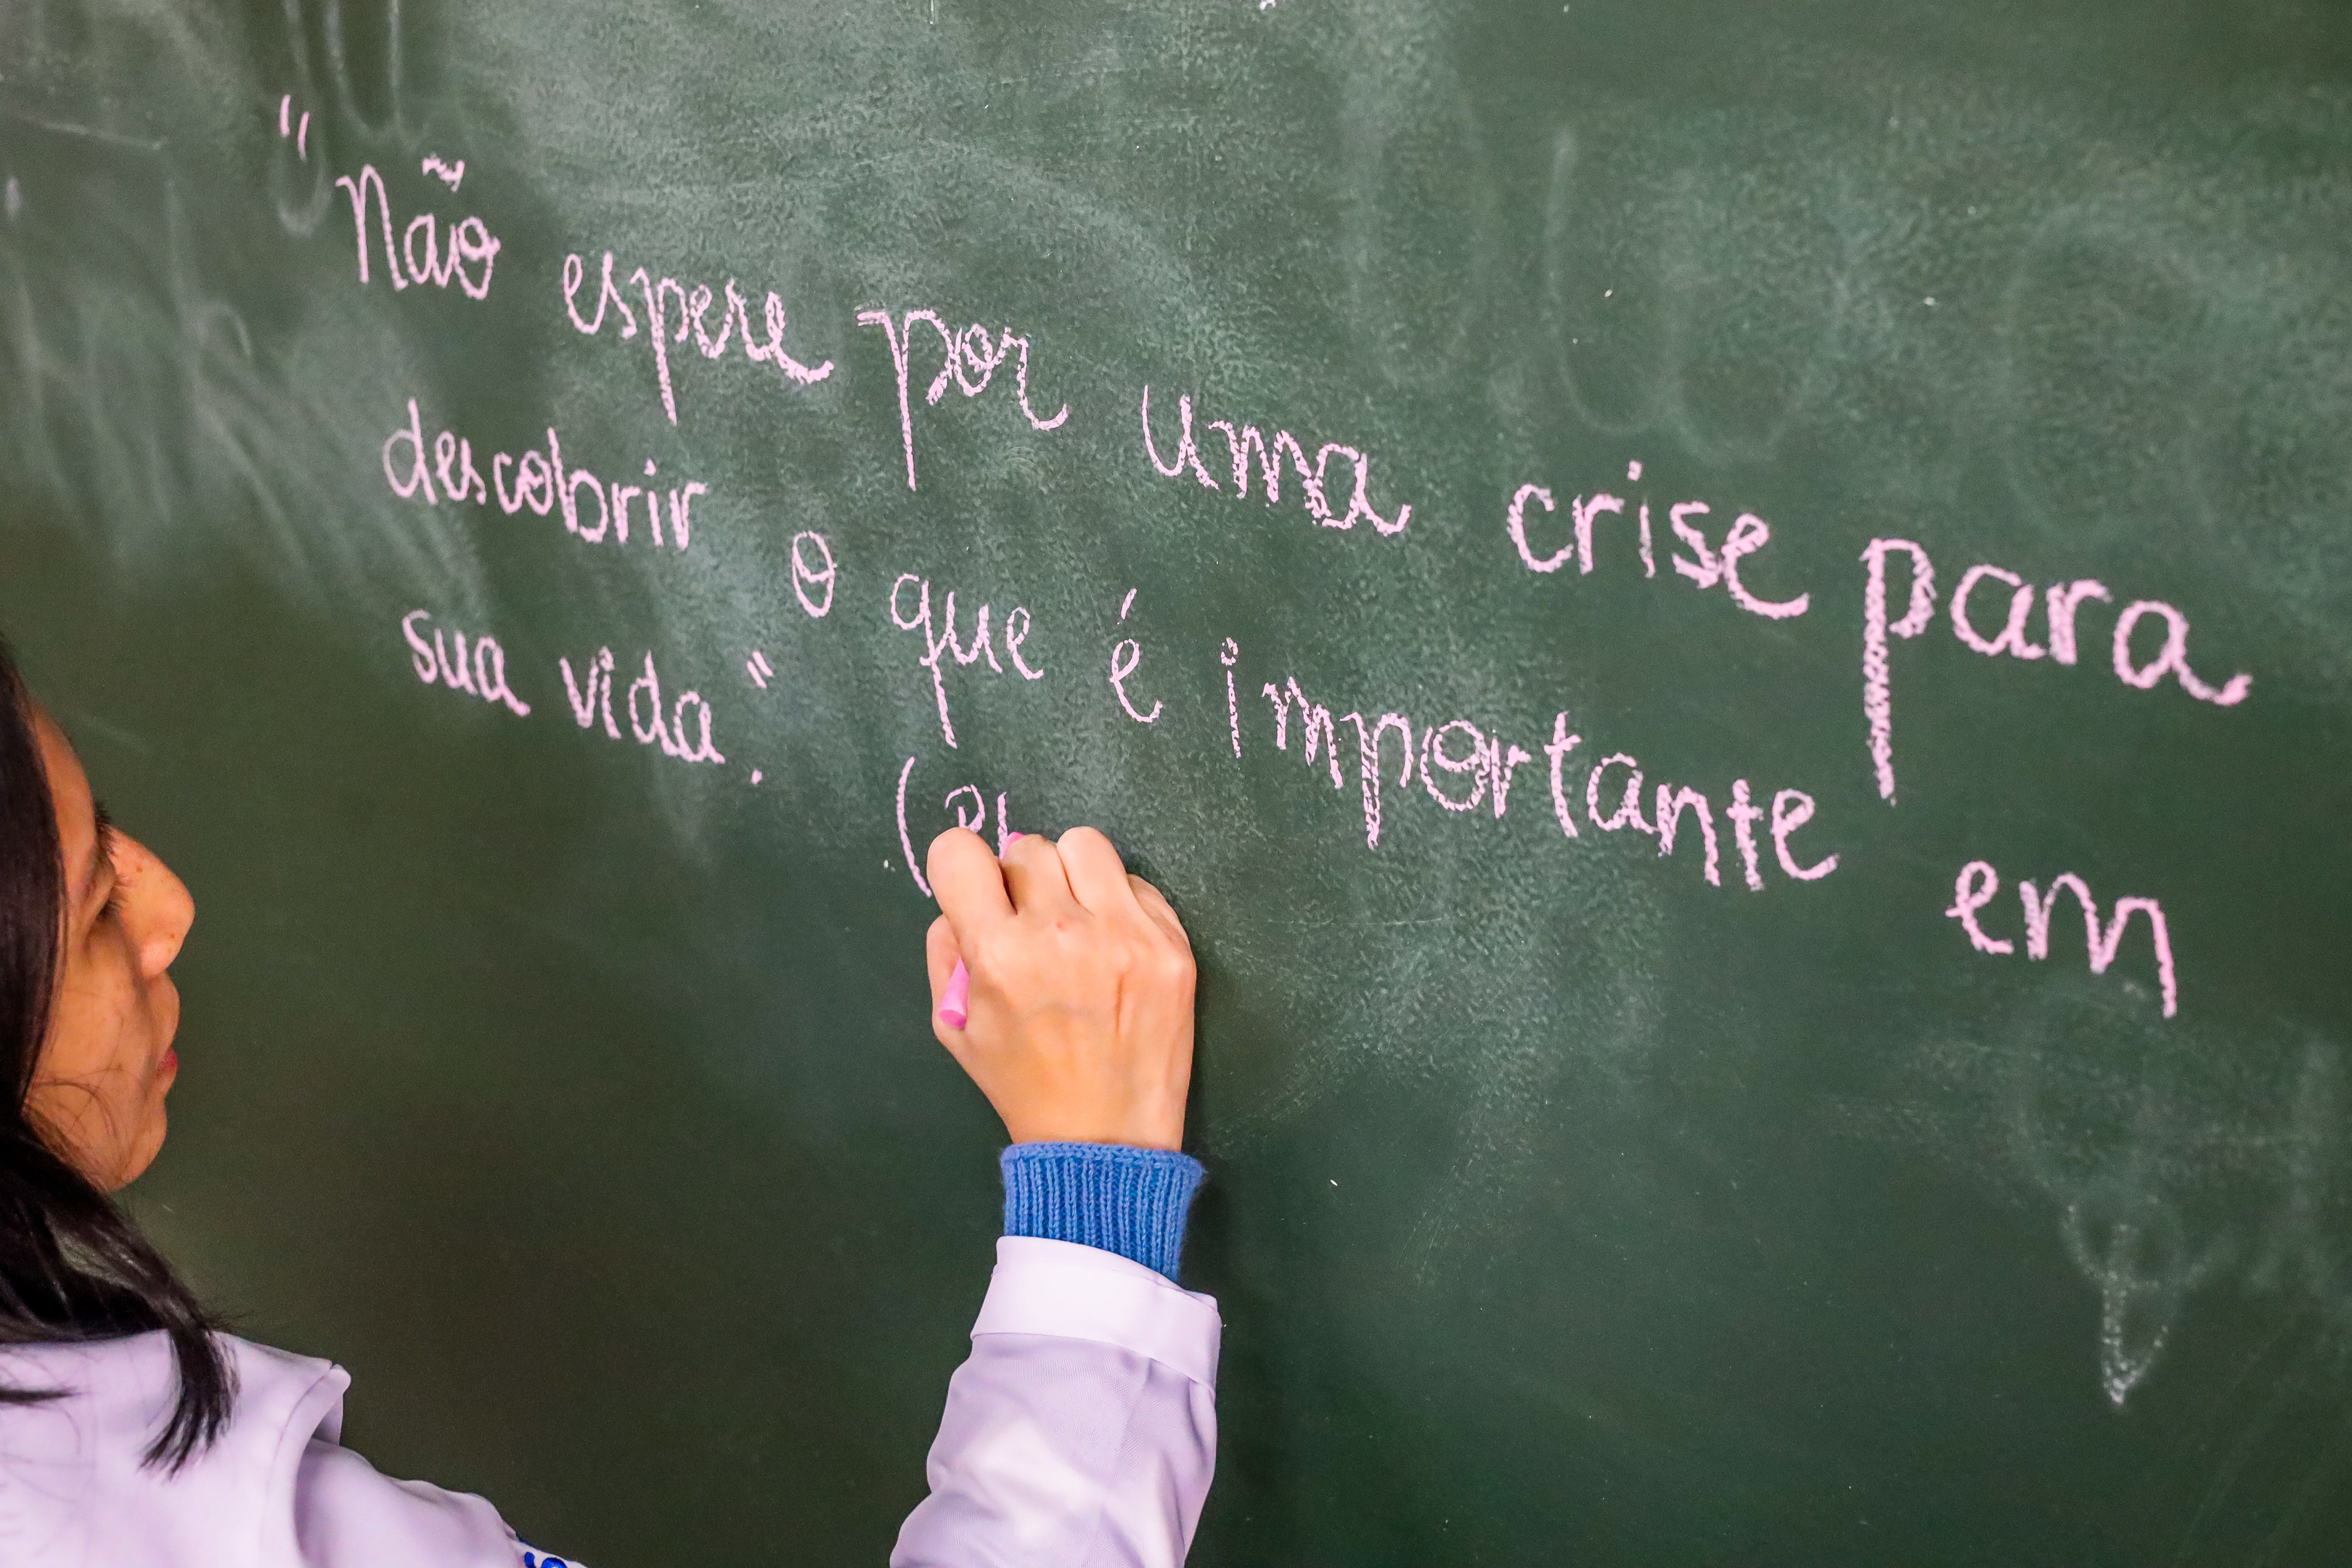 "Não espere por uma crise para
descobrir o que é importante em
sua vida."
(Pl